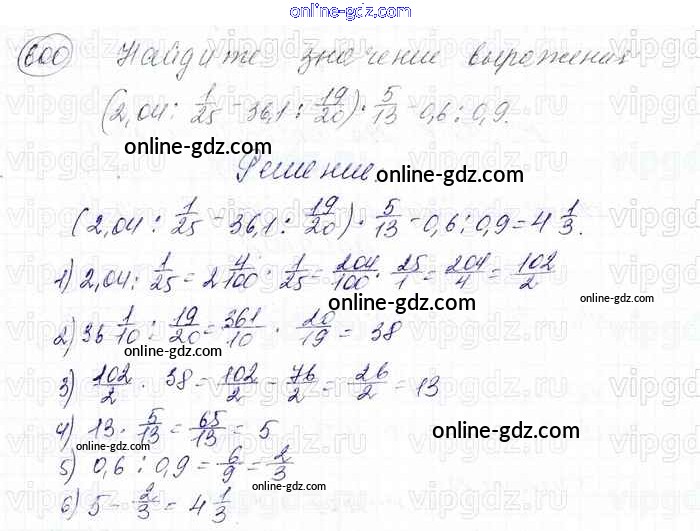 online-gdz.com
600 Найдите значение выражения
(2,04 : 1/25 - 36,1 : 19/20) · 5/13 - 0,6 : 0,9.
online-gdz.com
Решение
online-gdz.com
(2,04 : 1/25 - 36,1 : 19/20) · 5/13 - 0,6 : 0,9 = 4 1/3.
1) 2,04 : 1/25 = 2 4/100 · 1/25 = 204/100 · 25/1 = 204/4 = 102/2
online-gdz.com
online-gdz.com
2) 36 1/10 : 19/20 = 361/10 · 20/19 = 38
online-gdz.com
3) 102/2 · 38 = 102/2 - 76/2 = 26/2 = 13
online-gdz.com
4) 13 · 5/13 = 65/13 = 5
online-gdz.com
online-gdz.com
5) 0,6 : 0,9 = 6/9 = 2/3
6) 5 - 2/3 = 4 1/3
online-gdz.com